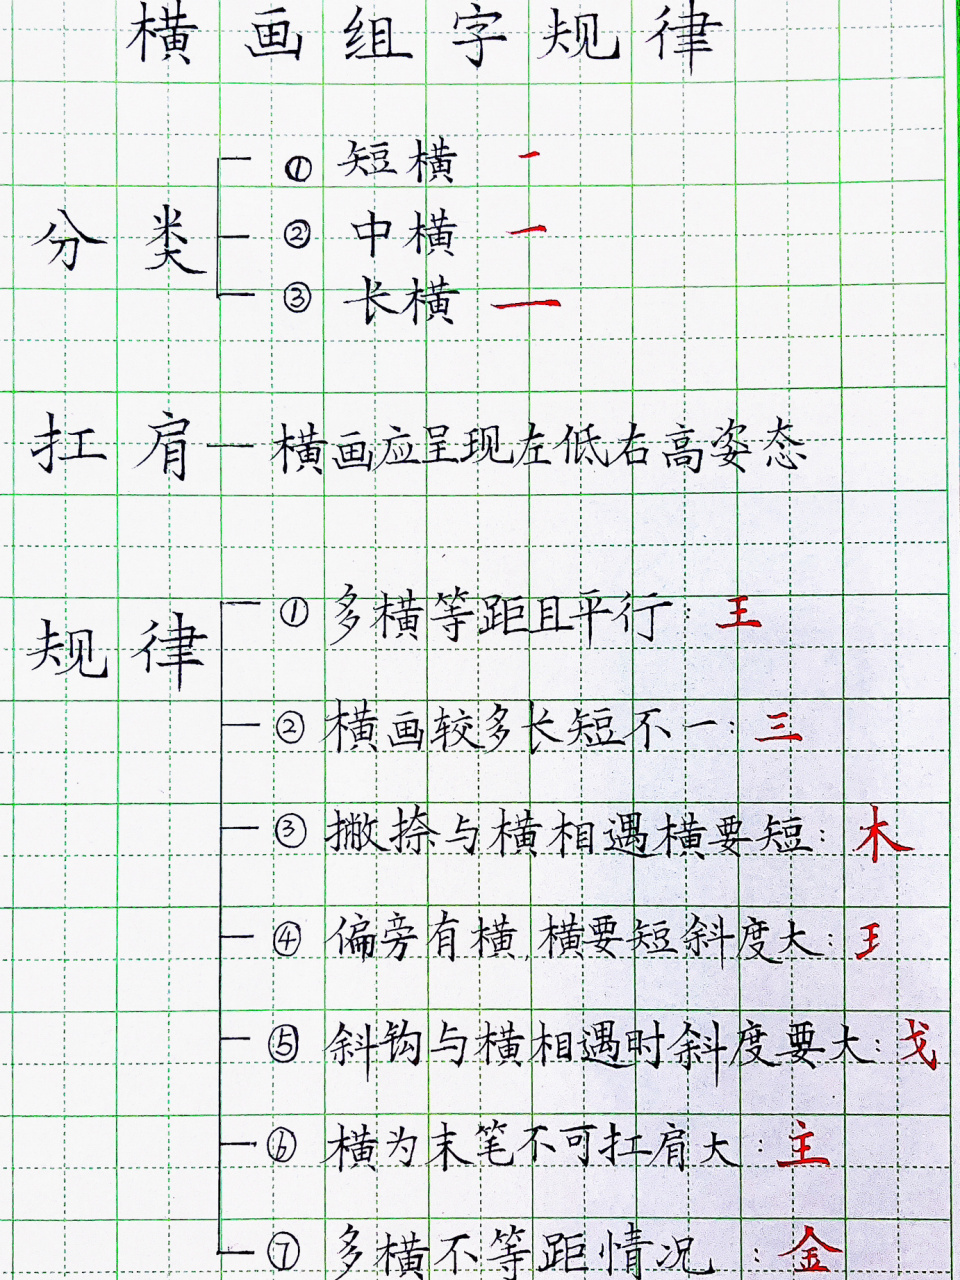 横画组字规律
① 短横 一
分类 ② 中横 一
③ 长横 一
扛肩 — 横画应呈现左低右高姿态
① 多横等距且平行：王
规律
② 横画较多长短不一：三
③ 撇捺与横相遇横要短：木
④ 偏旁有横，横要短斜度大：王
⑤ 斜钩与横相遇时斜度要大：戈
⑥ 横为末笔不可扛肩大：主
⑦ 多横不等距情况：金